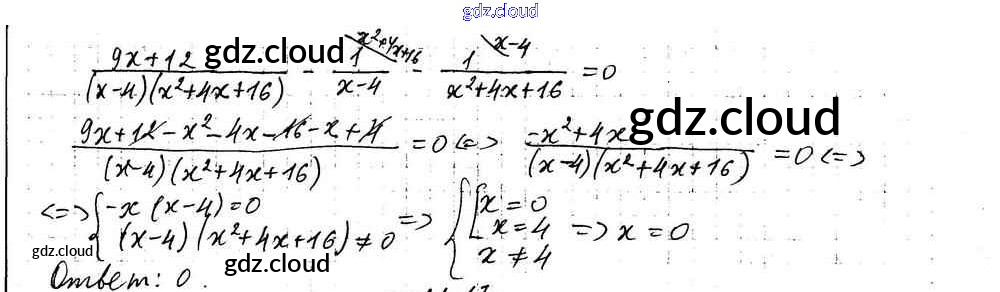 gdz.cloud
x²+4x+16 x-4
9x+12 / (x-4)(x²+4x+16) - 1 / x-4 - 1 / x²+4x+16 = 0
gdz.cloud gdz.cloud gdz.cloud
9x+12-x²-4x-16-x+4 / (x-4)(x²+4x+16) = 0 <=> -x²+4x / (x-4)(x²+4x+16) = 0 <=>
gdz.cloud
<=> { -x(x-4)=0 (x-4)(x²+4x+16)≠0 => { [ x=0 x=4 x≠4 => x=0
gdz.cloud gdz.cloud
Ответ: 0.